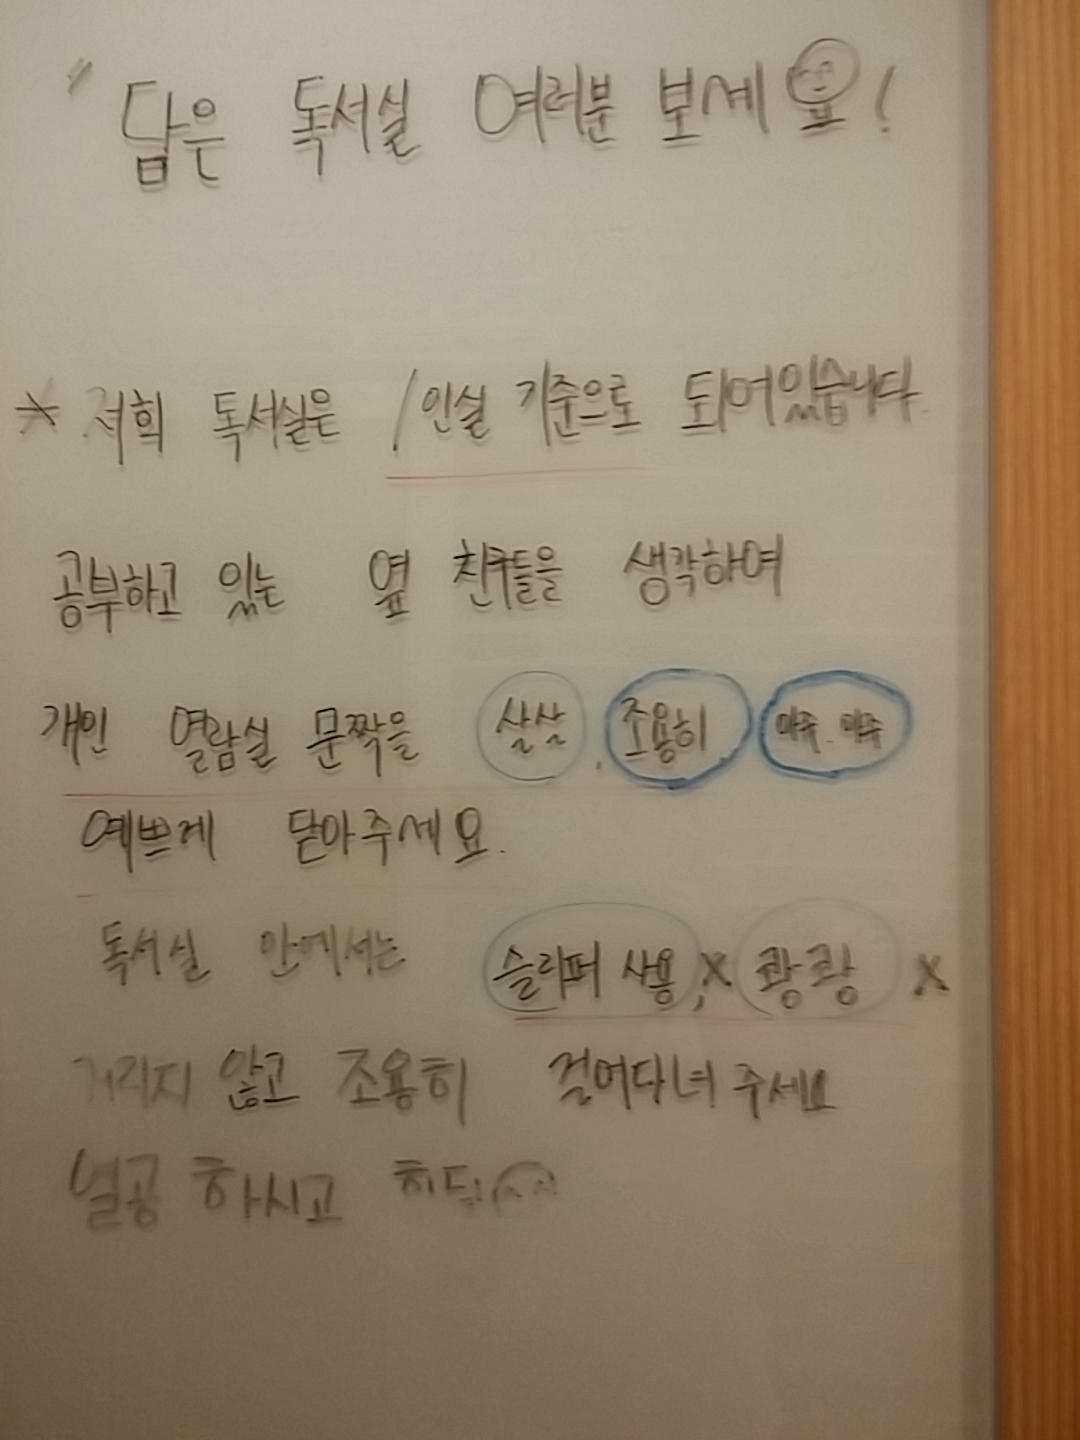 "닮은 독서실 여러분 보세요!
* 저희 독서실은 1인실 기준으로 되어있습니다.
공부하고 있는 옆 친구들을 생각하여
개인 열람실 문짝을 살살, 조용히 아주. 아주
예쁘게 닫아주세요.
독서실 안에서는 슬리퍼 사용 X, 쾅쾅 X
거리지 않고 조용히 걸어다녀 주세요
열공 하시고